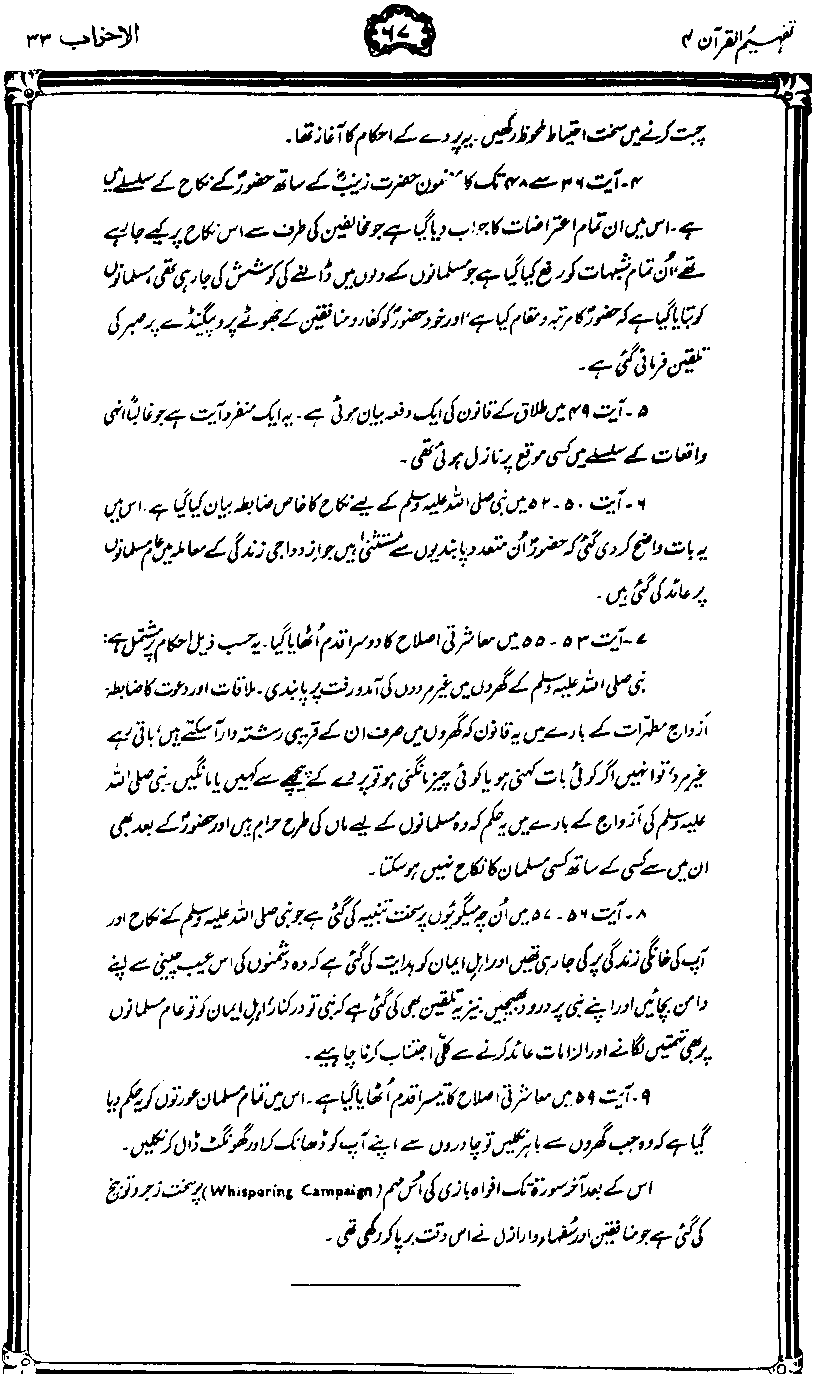 تفہیم القرآن ۴
۶۷
الاحزاب ۳۳
چیت کرنے میں سخت احتیاط ملحوظ رکھیں۔ یہ پردے کے احکام کا آغاز تھا۔
۴۔ آیت ۳۶ سے ۴۸ تک کا مضمون حضرت زینبؓ کے ساتھ حضورؐ کے نکاح کے سلسلے میں
ہے۔ اس میں ان تمام اعتراضات کا جواب دیا گیا ہے جو مخالفین کی طرف سے اس نکاح پر کیے جا رہے
تھے، اُن تمام شبہات کو رفع کیا گیا ہے جو مسلمانوں کے دلوں میں ڈالنے کی کوشش کی جا رہی تھی، مسلمانوں
کو بتایا گیا ہے کہ حضورؐ کا مرتبہ و مقام کیا ہے، اور خود حضورؐ کو کفار و منافقین کے جھوٹے پروپیگنڈے پر صبر کی
تلقین فرمائی گئی ہے۔
۵۔ آیت ۴۹ میں طلاق کے قانون کی ایک دفعہ بیان ہوئی ہے۔ یہ ایک منفرد آیت ہے جو غالباً انہی
واقعات کے سلسلے میں کسی موقع پر نازل ہوئی تھی۔
۶۔ آیت ۵۰۔۵۲ میں نبی صلی اللہ علیہ وسلم کے لیے نکاح کا خاص ضابطہ بیان کیا گیا ہے۔ اس میں
یہ بات واضح کر دی گئی کہ حضورؐ اُن متعدد پابندیوں سے مستثنیٰ ہیں جو ازدواجی زندگی کے معاملہ میں عام مسلمانوں
پر عائد کی گئی ہیں۔
۷۔ آیت ۵۳۔۵۵ میں معاشرتی اصلاح کا دوسرا قدم اُٹھایا گیا۔ یہ حسب ذیل احکام پر مشتمل ہے:
نبی صلی اللہ علیہ وسلم کے گھروں میں غیر مردوں کی آمد و رفت پر پابندی۔ ملاقات اور دعوت کا ضابطہ۔
ازواج مطہرات کے بارے میں یہ قانون کہ گھروں میں صرف ان کے قریبی رشتہ دار آ سکتے ہیں، باقی رہے
غیر مرد، تو انہیں اگر کوئی بات کہنی ہو یا کوئی چیز مانگنی ہو تو پردے کے پیچھے سے کہیں یا مانگیں۔ نبی صلی اللہ
علیہ وسلم کی ازواج کے بارے میں یہ حکم کہ وہ مسلمانوں کے لیے ماں کی طرح حرام ہیں اور حضورؐ کے بعد بھی
ان میں سے کسی کے ساتھ کسی مسلمان کا نکاح نہیں ہو سکتا۔
۸۔ آیت ۵۶۔۵۷ میں اُن چہ میگوئیوں پر سخت تنبیہ کی گئی ہے جو نبی صلی اللہ علیہ وسلم کے نکاح اور
آپ کی خانگی زندگی پر کی جا رہی تھیں اور اہل ایمان کو ہدایت کی گئی ہے کہ وہ دشمنوں کی اس عیب چینی سے اپنے
دامن بچائیں اور اپنے نبی پر درود بھیجیں۔ نیز یہ تلقین بھی کی گئی ہے کہ نبی تو درکنار، اہل ایمان کو تو عام مسلمانوں
پر بھی تہمتیں لگانے اور الزامات عائد کرنے سے کلّی اجتناب کرنا چاہیے۔
۹۔ آیت ۵۹ میں معاشرتی اصلاح کا تیسرا قدم اُٹھایا گیا ہے۔ اس میں تمام مسلمان عورتوں کو یہ حکم دیا
گیا ہے کہ وہ جب گھروں سے باہر نکلیں تو چادروں سے اپنے آپ کو ڈھانک کر اور گھونگٹ ڈال کر نکلیں۔
اس کے بعد آخر سورۃ تک افواہ بازی کی اُس مہم (Whispering Campaign) پر سخت زجر و توبیخ
کی گئی ہے جو منافقین اور سُفہاء و ارازل نے اس وقت برپا کر رکھی تھی۔